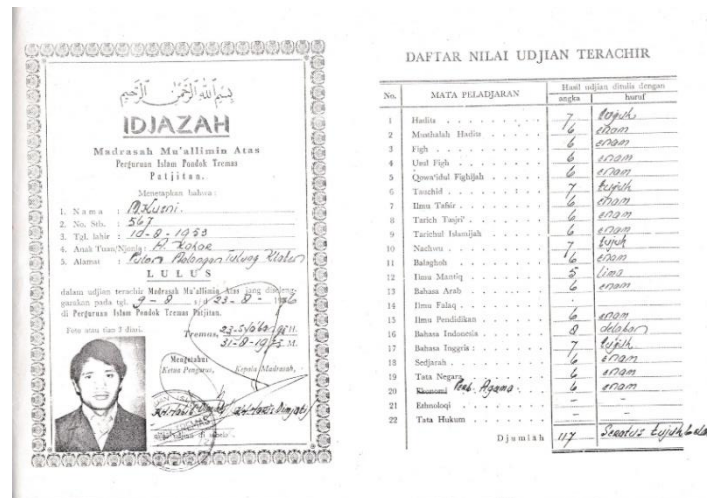 بسم الله الرحمن الرحيم
IDJAZAH
Madrasah Mu'allimin Atas
Perguruan Islam Pondok Tremas
Patjitan.
Menetapkan bahwa :
1. Nama : M. Kusni.
2. No. Stb. : 567
3. Tgl. lahir : 10-8-1953
4. Anak Tuan/Njonja :
5. Alamat :
LULUS
dalam udjian terachir Madrasah Mu'allimin Atas jang diseleng-
garakan pada tgl. 9-8 s/d 23-8-
di Perguruan Islam Pondok Tremas Patjitan.
Foto atau tjap 3 djari.
Tremas, H.
31-8-19 M.
Mengetahui
Ketua Pengurus, Kepala Madrasah,
DAFTAR NILAI UDJIAN TERACHIR
No. MATA PELADJARAN Hasil udjian ditulis dengan
angka huruf
1 Hadits 7 tujuh
2 Musthalah Hadits 6 enam
3 Fiqh 6 enam
4 Usul Fiqh 6 enam
5 Qowa'idul Fighijah 6 enam
6 Tauchid 7 tujuh
7 Ilmu Tafsir 6 enam
8 Tarich Tasjri' 6 enam
9 Tarichul Islamijah 6 enam
10 Nachwu 7 tujuh
11 Balaghoh 6 enam
12 Ilmu Mantiq 5 lima
13 Bahasa Arab 6 enam
14 Ilmu Falaq
15 Ilmu Pendidikan 6 enam
16 Bahasa Indonesia 8 delapan
17 Bahasa Inggris : 7 tujuh
18 Sedjarah 6 enam
19 Tata Negara 6 enam
20 Ekonomi Agama 6 enam
21 Ethnologi - -
22 Tata Hukum - -
Djumlah 117 Seratus tujuh belas